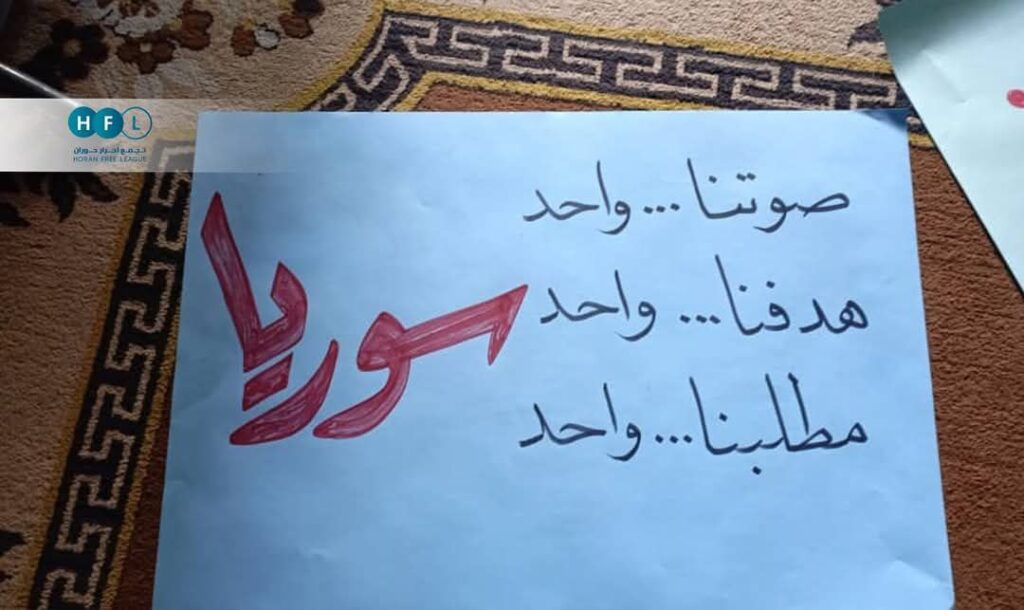 HFL
تجمع أحرار حوران
HORAN FREE LEAGUE
صوتنا ... واحد
هدفنا ... واحد
سوريا
مطلبنا ... واحد